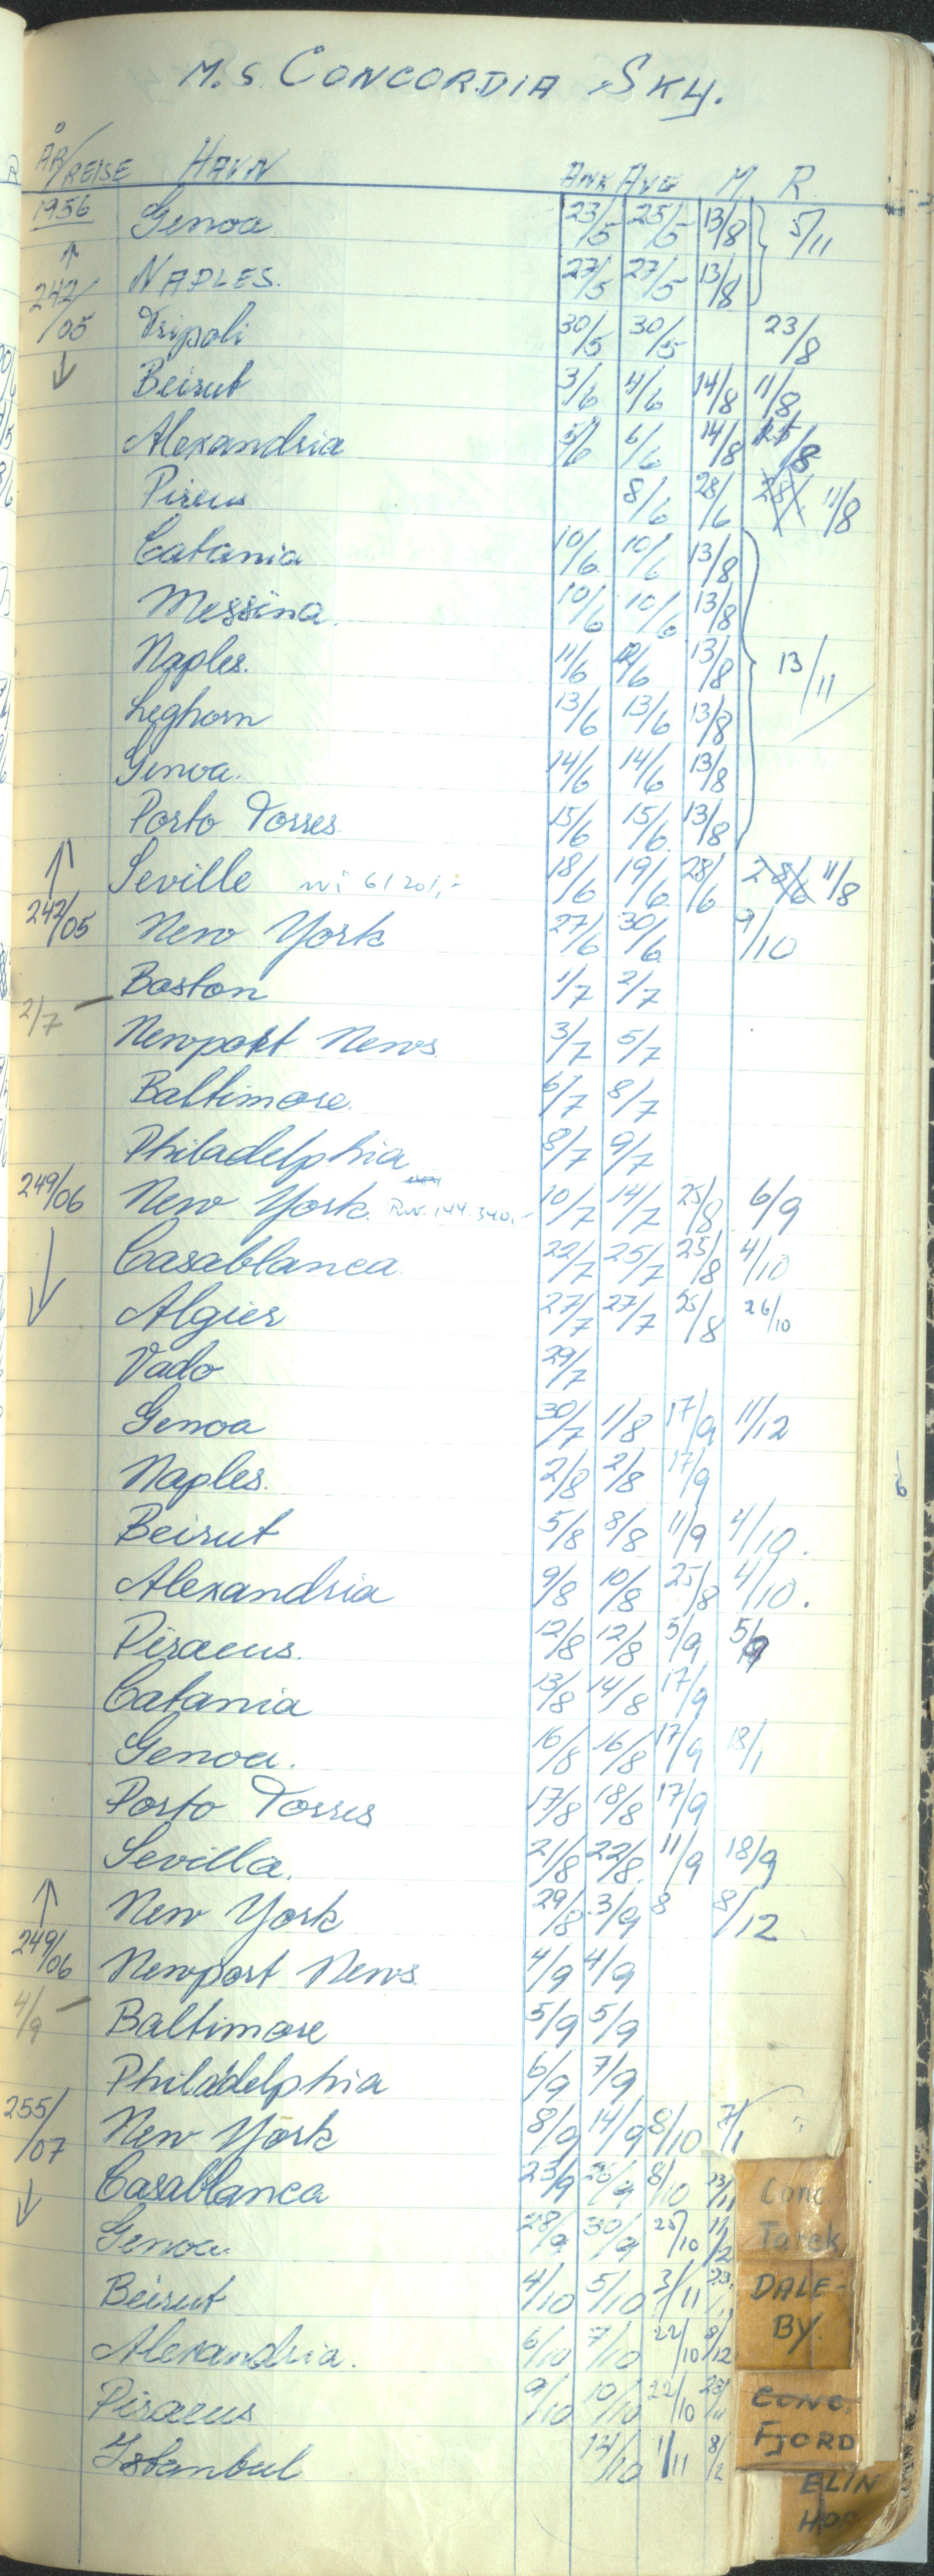 M.S. CONCORDIA SKY.
ÅR/REISE HAVN ANK AVG M R.
1956 Genoa 23/5 25/5 13/8 5/11
↑ NAPLES. 27/5 27/5 13/8
242/05 Tripoli 30/5 30/5 23/8
↓ Beirut 3/6 4/6 14/8 11/8
Alexandria 5/6 6/6 14/8
Pireus 8/6 28/6 28/ 11/8
Catania 10/6 10/6 13/8
Messina. 10/6 10/6 13/8
Naples. 11/6 12/6 13/8 13/11
Leghorn 13/6 13/6 13/8
Genoa. 14/6 14/6 13/8
Porto Torres 15/6 15/6 13/8
↑ Seville 18/6 19/6 28/6 28/6 11/8
242/05 New York 27/6 30/6 9/10
Boston 1/7 2/7
2/7 — Newport News 3/7 5/7
Baltimore. 6/7 8/7
Philadelphia 8/7 9/7
249/06 New York. R.v. 144.340,- 10/7 14/7 25/8 6/9
↓ Casablanca 22/7 25/7 25/8 4/10
Algier 27/7 27/7 25/8 26/10
Vado 29/7
Genoa 30/7 1/8 17/9 11/12
Naples. 2/8 2/8 17/9
Beirut 5/8 8/8 11/9 4/10.
Alexandria 9/8 10/8 25/8 4/10.
Piraeus. 12/8 12/8 5/9 5/9
Catania 13/8 14/8 17/9
Genoa. 16/8 16/8 17/9 18/1
Porto Torres 17/8 18/8 17/9
Sevilla. 21/8 22/8. 11/9 18/9
↑ New York 29/8 3/9 8 8/12
249/06 Newport News 4/9 4/9
4/9 — Baltimore 5/9 5/9
Philadelphia 6/9 7/9
255/07 New York 8/9 14/9 8/10 7/1
↓ Casablanca 23/9 26/9 8/10 23/11
Genoa 28/9 30/9 25/10 11/2
Beirut 4/10 5/10 3/11 23/11
Alexandria. 6/10 7/10 22/10 8/12
Piraeus 9/10 10/10 22/10 23/11
Istanbul 12/10 1/11 8/2
Conc.
Tarek
DALE-
BY.
CONC.
FJORD
ELIN
HOR